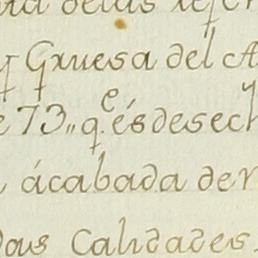 delas
y Gruesa del A
e 73,, q.e és desech
ácabada de
dous Calidades